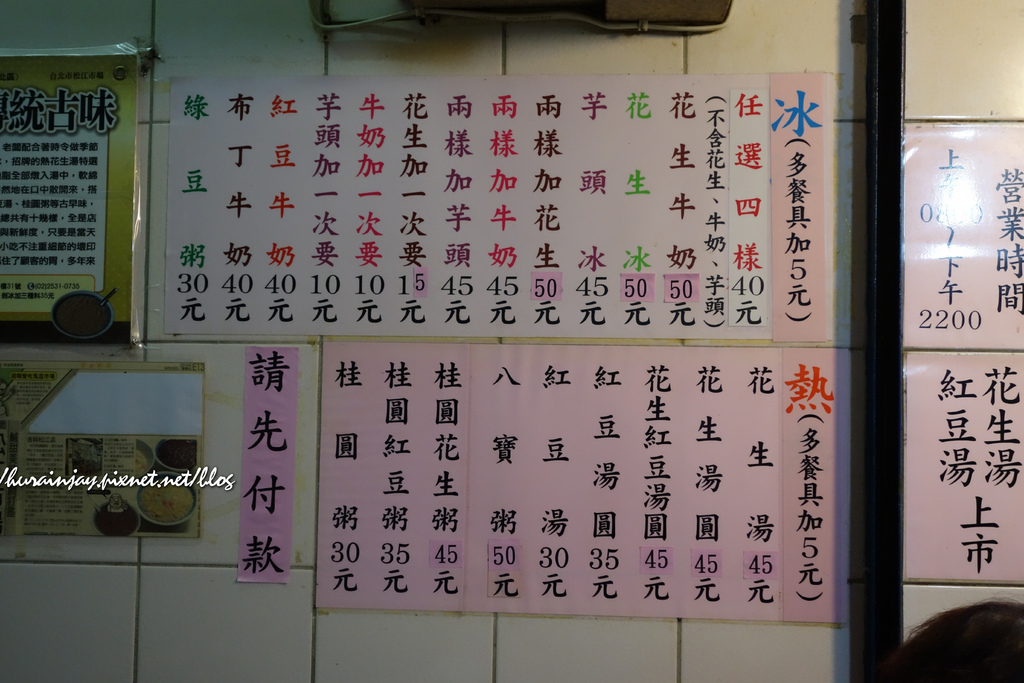 冰(多餐具加5元)
任選四樣40元
(不含花生、牛奶、芋頭)
花生牛奶50元
花生冰50元
芋頭冰45元
兩樣加花生50元
兩樣加牛奶45元
兩樣加芋頭45元
花生加一次要15元
牛奶加一次要10元
芋頭加一次要10元
紅豆牛奶40元
布丁牛奶40元
綠豆粥30元
熱(多餐具加5元)
花生湯45元
花生湯圓45元
花生紅豆湯圓45元
紅豆湯圓35元
紅豆湯30元
八寶粥50元
桂圓花生粥45元
桂圓紅豆粥35元
桂圓粥30元
請先付款
營業時間
下午
2200
花生湯
紅豆湯
上市
台北市松江市場
傳統古味
老闆配合著時令做季節
招牌的熱花生湯特選
脂全部燉入湯中,軟綿
然地在口中散開來,搭
湯、桂圓粥等古早味,
總共有十幾樣,全是店
與新鮮度,只要是當天
小吃不注重細節的壞印
抓住了顧客的胃,多年來
樓31號 (02)2531-0735
/hurainjay.pixnet.net/blog